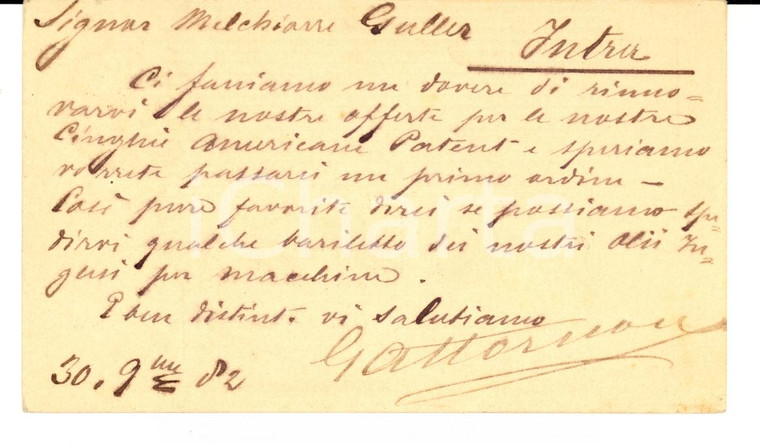 Signor Melchiorre Guller
Intra
Ci facciamo un dovere di rinno=
varvi le nostre offerte per le nostre
Cinghie Americane Patent e speriamo
vorrete passarci un primo ordine –
Così pure favorite dirci se possiamo spe=
dirvi qualche bariletto dei nostri Olii In=
glesi per macchine.
E ben distint. vi salutiamo
30. 9bre 82